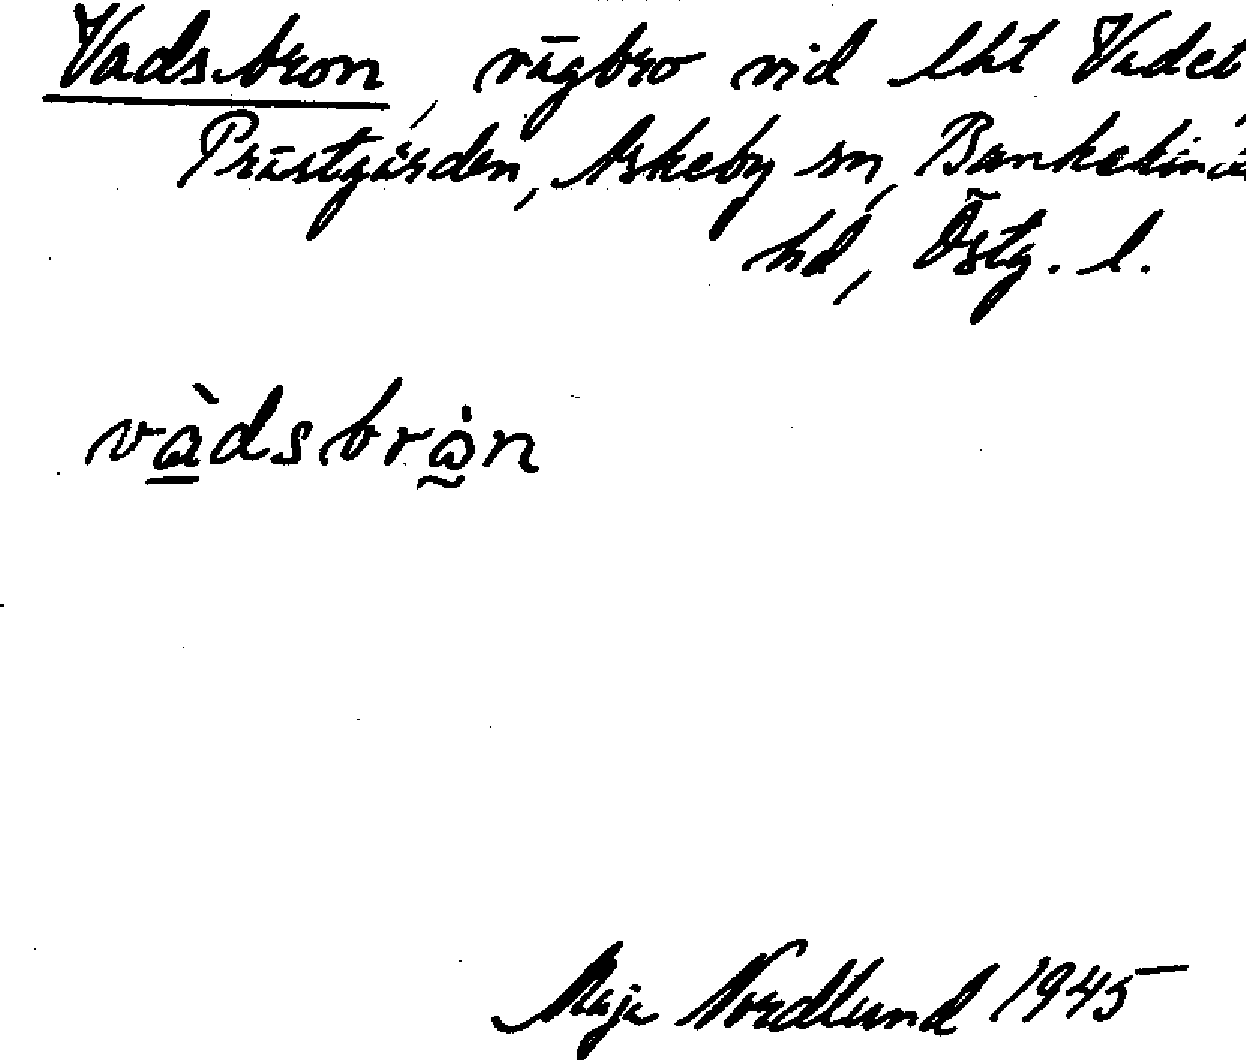 Vadsbron, vägbro vid lht Vadet,
Prästgården, Askeby sn, Bankekinds
hd, Östg. l.
vàdsbròn
Maja Nordlund 1945